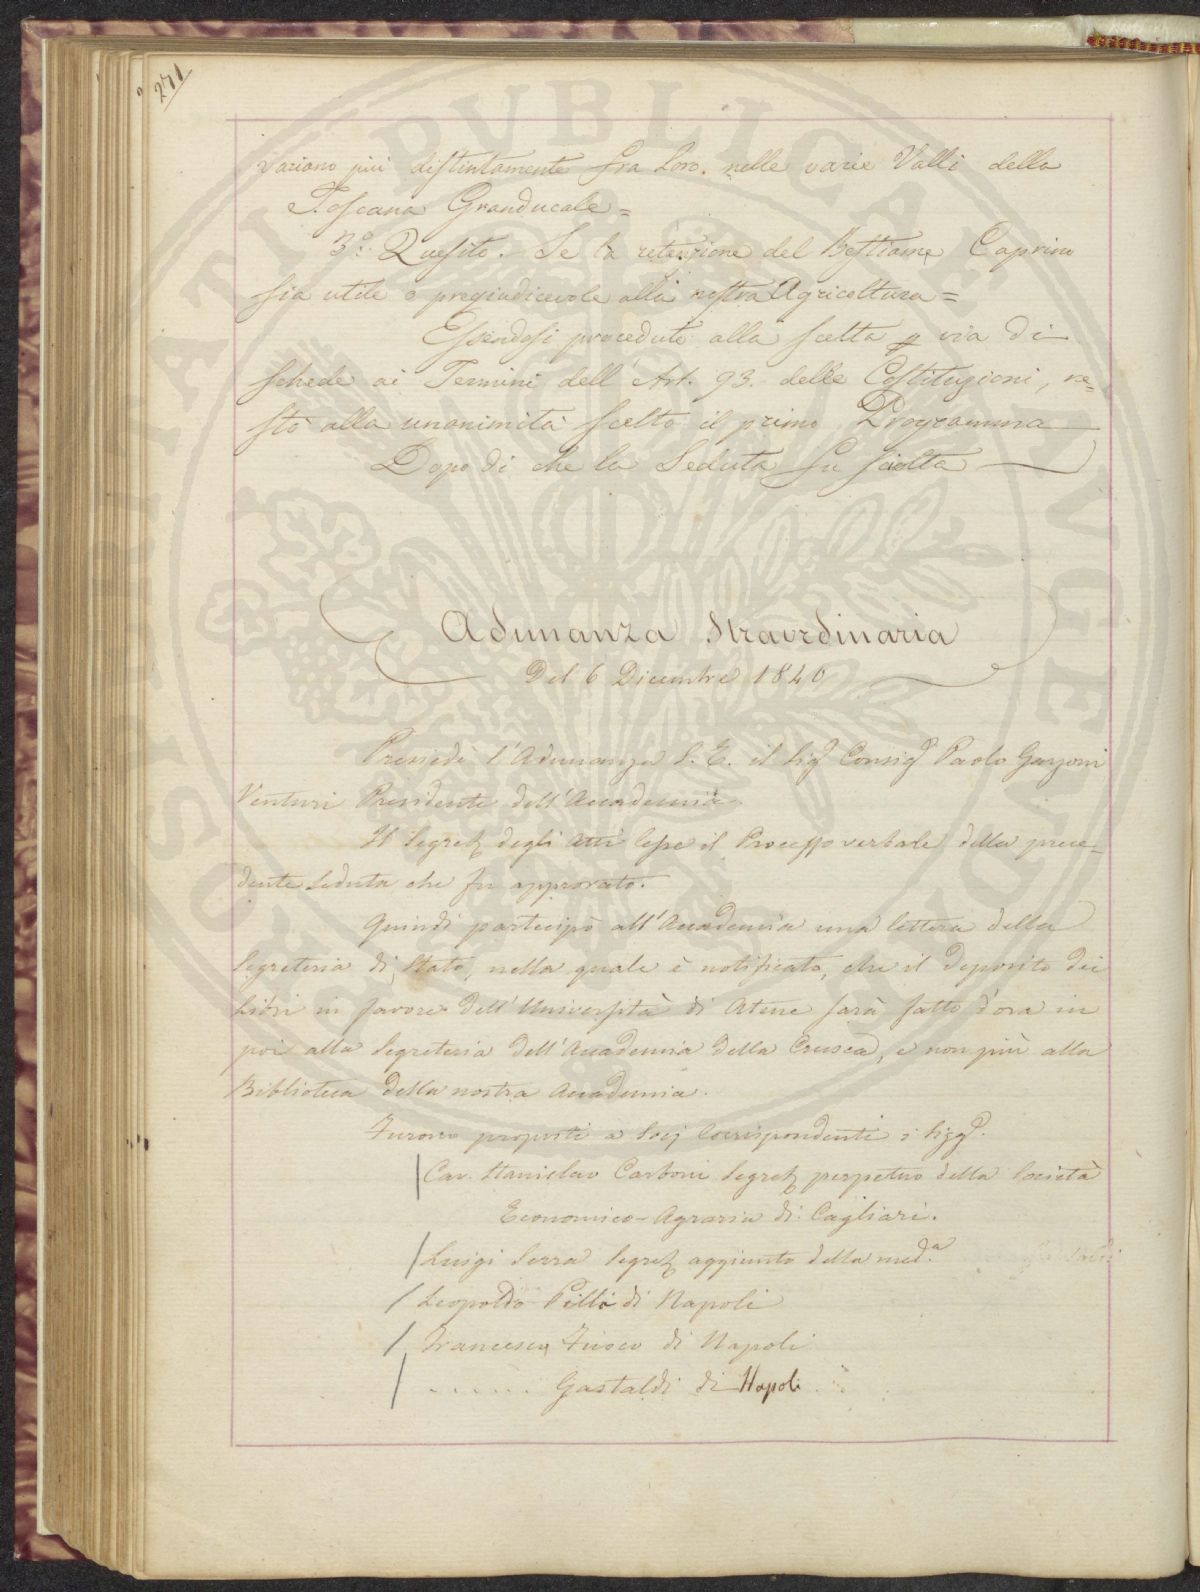 271
variano più distintamente fra Loro. nelle varie Valli della
Toscana Granducale =
3.º Quesito. Se la retenzione del Bestiame Caprino
sia utile o pregiudicevole alla nostra Agricoltura =
Essendosi proceduto alla scelta p via di
schede ai Termini dell'Art. 93. delle Costituzioni, re=
stò alla unanimità scelto il primo Programma
Dopo di che la Seduta fu sciolta
Adunanza Straordinaria
Del 6 Dicembre 1840
Presiedè l'Adunanza S. E. il Sigr Consigr Paolo Garzoni
Venturi Presidente dell'Accademia.
Il Segret. degli Atti lesse il Processo verbale della prece=
dente Seduta che fu approvato.
Quindi partecipò all'Accademia una lettera della
Segreteria di Stato, nella quale è notificato, che il deposito dei
Libri in favore dell'Università di Atene sarà fatto d'ora in
poi alla Segreteria dell'Accademia della Crusca, e non più alla
Biblioteca della nostra Accademia.
Furono proposti a Socj Corrispondenti i Sigg.ri
Cav. Stanislao Carboni Segret. perpetuo della Società
Economico-Agraria di Cagliari.
Luigi Serra Segret. aggiunto della med.a
Leopoldo Pilla di Napoli
Francesco Fuoco di Napoli
....... Gastaldi di Napoli
SOCIETATI PVBLICAE AVGENDO